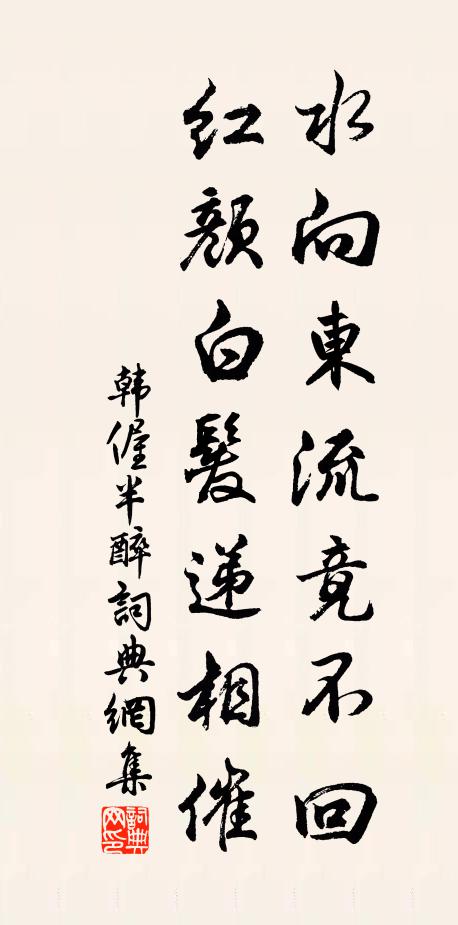 水向東流竟不回
紅顏白髮遞相催
韓偓半醉詞典網集
詞典網印